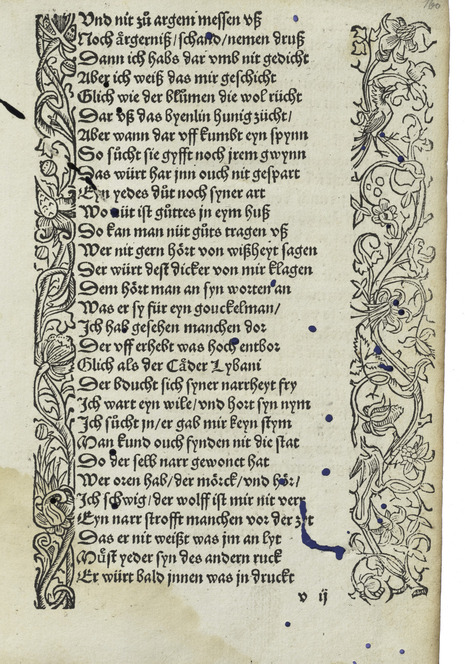 160
Vnd nit zů argem messen vß
Noch ärgerniß / schand / nemen druß
Dann ich habs dar vmb nit gedicht
Aber ich weiß das mir geschicht
Glich wie der blůmen die wol rücht
Dar vß das byenlin hunig zücht /
Aber wann dar vff kumbt eyn spynn
So sůcht sie gyfft noch jrem gwynn
Das würt har jnn ouch nit gespart
Eyn yedes důt noch syner art
Wo nüt ist gůttes jn eym huß
Do kan man nüt gůts tragen vß
Wer nit gern hört von wißheyt sagen
Der würt dest dicker von mir klagen
Dem hört man an syn worten an
Was er sy für eyn gouckelman /
Ich hab gesehen manchen dor
Der vff erhebt was hoch entbor
Glich als der Cåder Lybani
Der bducht sich syner narrheyt fry
Ich wart eyn wile / vnd hort syn nym
Ich sůcht jn / er gab mir keyn stym
Man kund ouch fynden nit die stat
Do der selb narr gewonet hat
Wer oren hab / der mörck / vnd hör /
Ich schwig / der wolff ist mir nit verr
Eyn narr strofft manchen vor der zyt
Das er nit weißt was jm an lyt
Můst yeder syn des andern ruck
Er würt bald jnnen was jn druckt
v ij